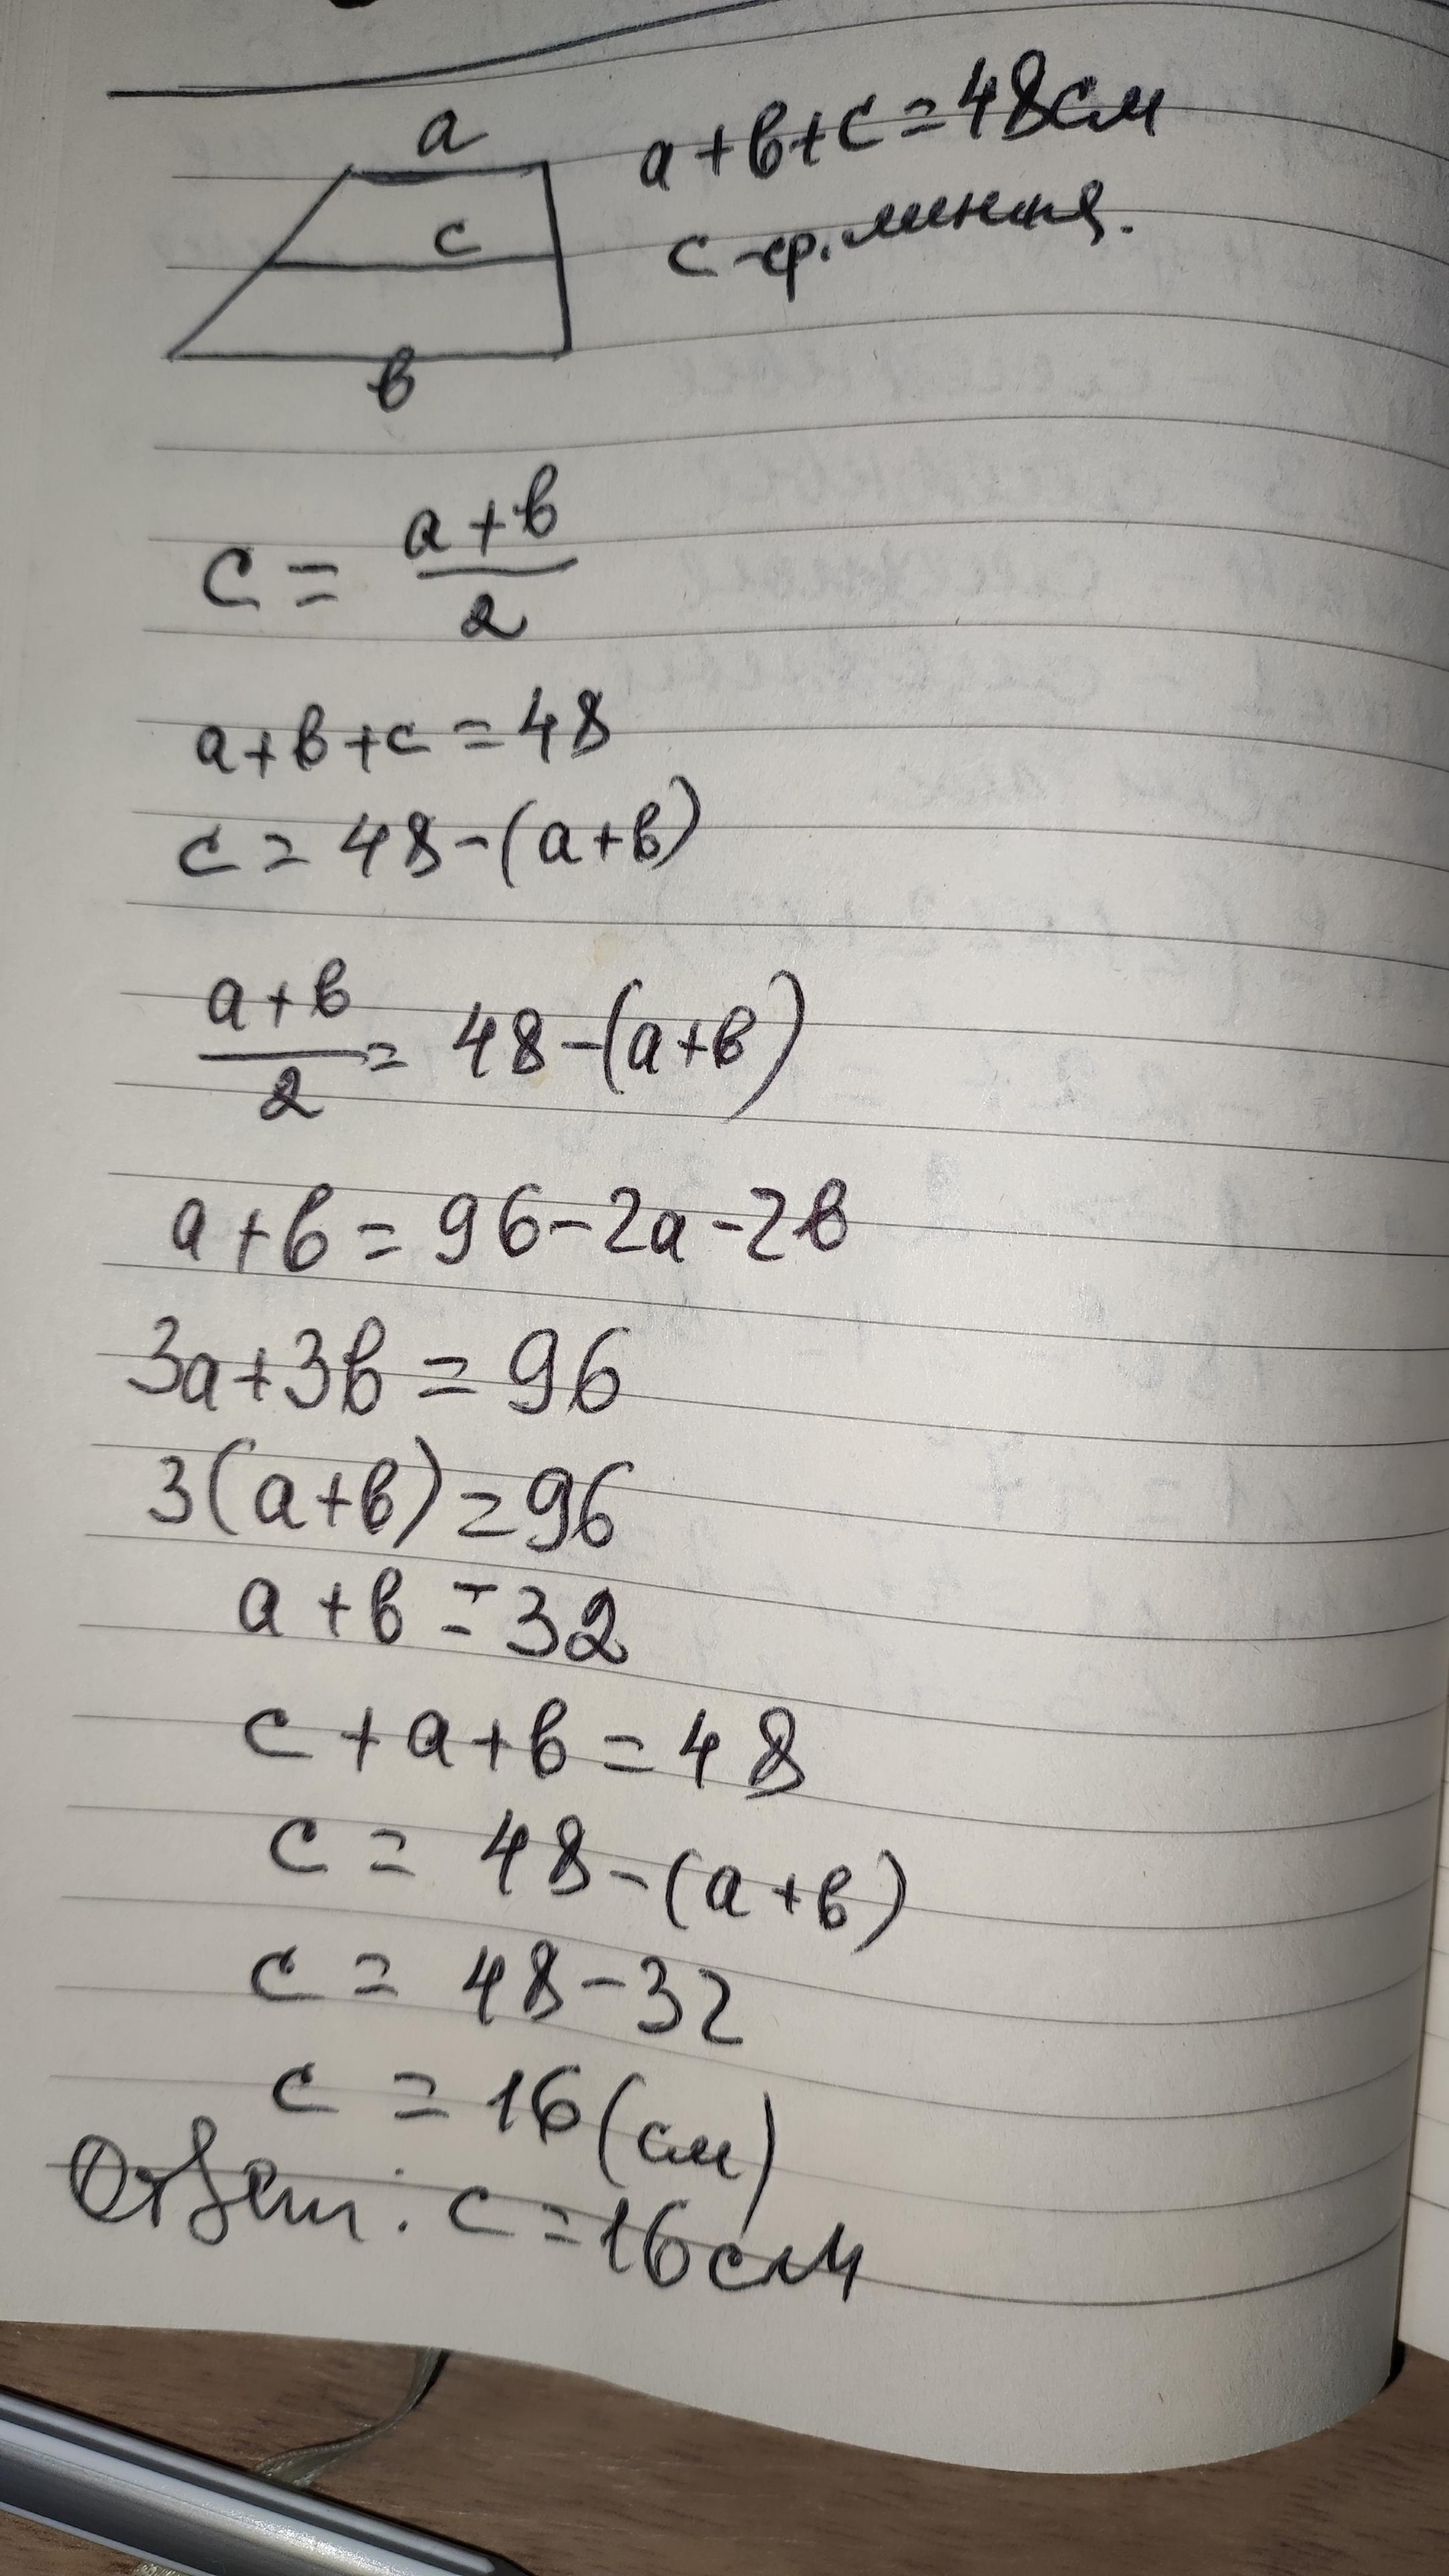 a
a+в+с=48см
с
с-ср. линия.
в
с = (a+в)/2
a+в+с=48
с=48-(a+в)
(a+в)/2 = 48-(a+в)
a+в=96-2a-2в
3a+3в=96
3(a+в)=96
a+в=32
с+a+в=48
с=48-(a+в)
с=48-32
с=16(см)
Ответ: с=16см